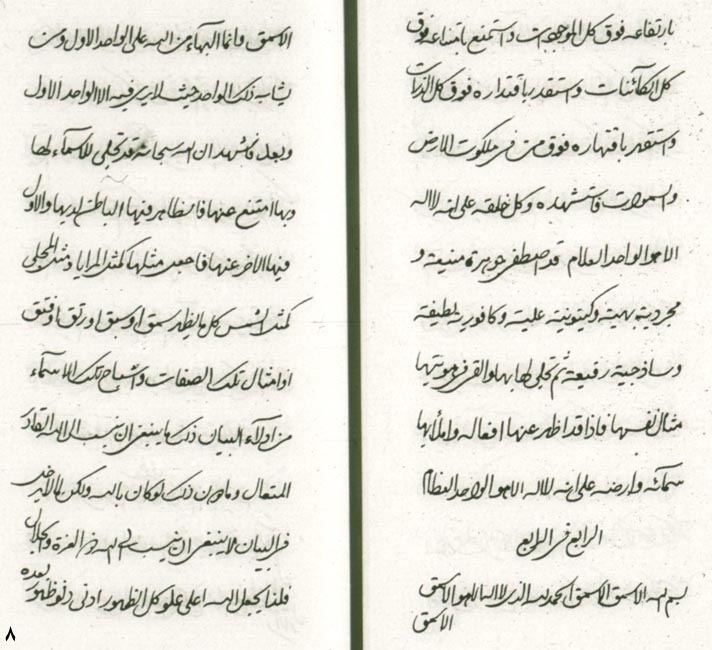 بارتفاعه فوق كل الموجودات واستمنع بامتناعه فوق
كل الكائنات واستقدر باقتداره فوق كل الذرات
واستقهر باقتهاره فوق من في ملكوت الارض
والسموات فاستشهده وكل خلقه على انه لا اله
الا هو الواحد العلام قد اصطفى جوهرة منيعة و
مجردية بهية وكينونية علية وكافورية لطيفة
وساذجية رفيعة ثم تجلى لها بها والقى في هويتها
مثال نفسها فاذا قد اظهر عنها افعاله واملأ بها
سمائه وارضه على انه لا اله الا هو الواحد
الرابع في الرابع
بسم الله الاسمق الاسمق الحمد لله الذي لا اله الا هو الاسمق
الاسمق
الاسمق وانما البهاء من الله على الواحد الاول ومن
يشابه ذلك الواحد حيث لا يرى فيه الا الواحد الاول
وبعد فاشهد ان الله سبحانه قد تجلى للاسماء لها
وبها امتنع عنها فالظاهر فيها الباطن لديها والاول
فيها الاخر عنها فاجعل مثلها كمثل المرايا ومثل المجلى
كمثل الشمس كل ما يظهر سمق او سبق او رتق او فتق
او امثال تلك الصفات واشباح تلك الاسماء
من ادلاء البيان ذلك ما ينبغي ان ينسب الى الله القادر
المتعال وما دون ذلك لو كان بالله ولكن لما لا يدخل
في البيان لا ينبغي ان ينسب الى الله ذي العزة والجلال
فلذا يجعل الله اعلى علو كل الظهور ادنى دنو ظهور
بعده
٨